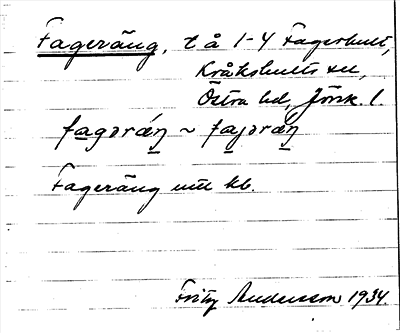 Fageräng, t å 1-4 Fagerhult,
Kråkshults sn,
Östra hd, Jönk. l.
fagəræ̀ŋ ~ fajəræ̀ŋ
Fageräng utt kb.
Fritz Andersson 1934.